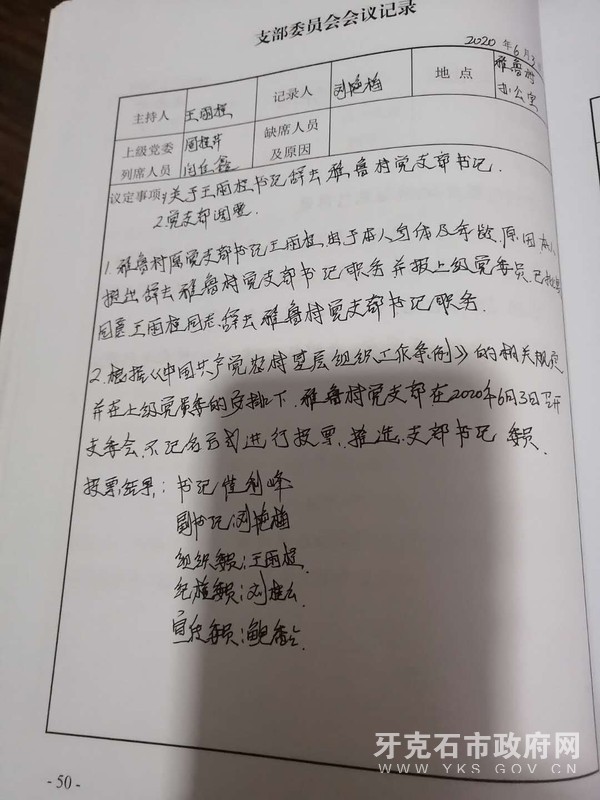 支部委员会会议记录
2020 年 6 月 3
主持人 王雨桓 记录人 刘艳梅 地点 雅鲁村
办公室
上级党委 周桂芹 缺席人员
列席人员 及原因
议定事项: 1.关于王雨桓书记辞去雅鲁村党支部书记.
2.党支部调整.
1.雅鲁村原党支部书记王雨桓,由于本人身体及年龄原因,本人
提出辞去雅鲁村党支部书记职务并报上级党委
同意王雨桓同志辞去雅鲁村党支部书记职务.
2.根据《中国共产党农村基层组织工作条例》的相关规定
并在上级党委的安排下,雅鲁村党支部在2020年6月3日召开
支委会,不记名方式进行投票,推选支部书记 委员.
投票结果: 书记
副书记:刘艳梅
组织委员:王雨桓.
纪检委员:刘
宣传委员:鲍
- 50 -
牙克石市政府网
WWW.YKS.GOV.CN